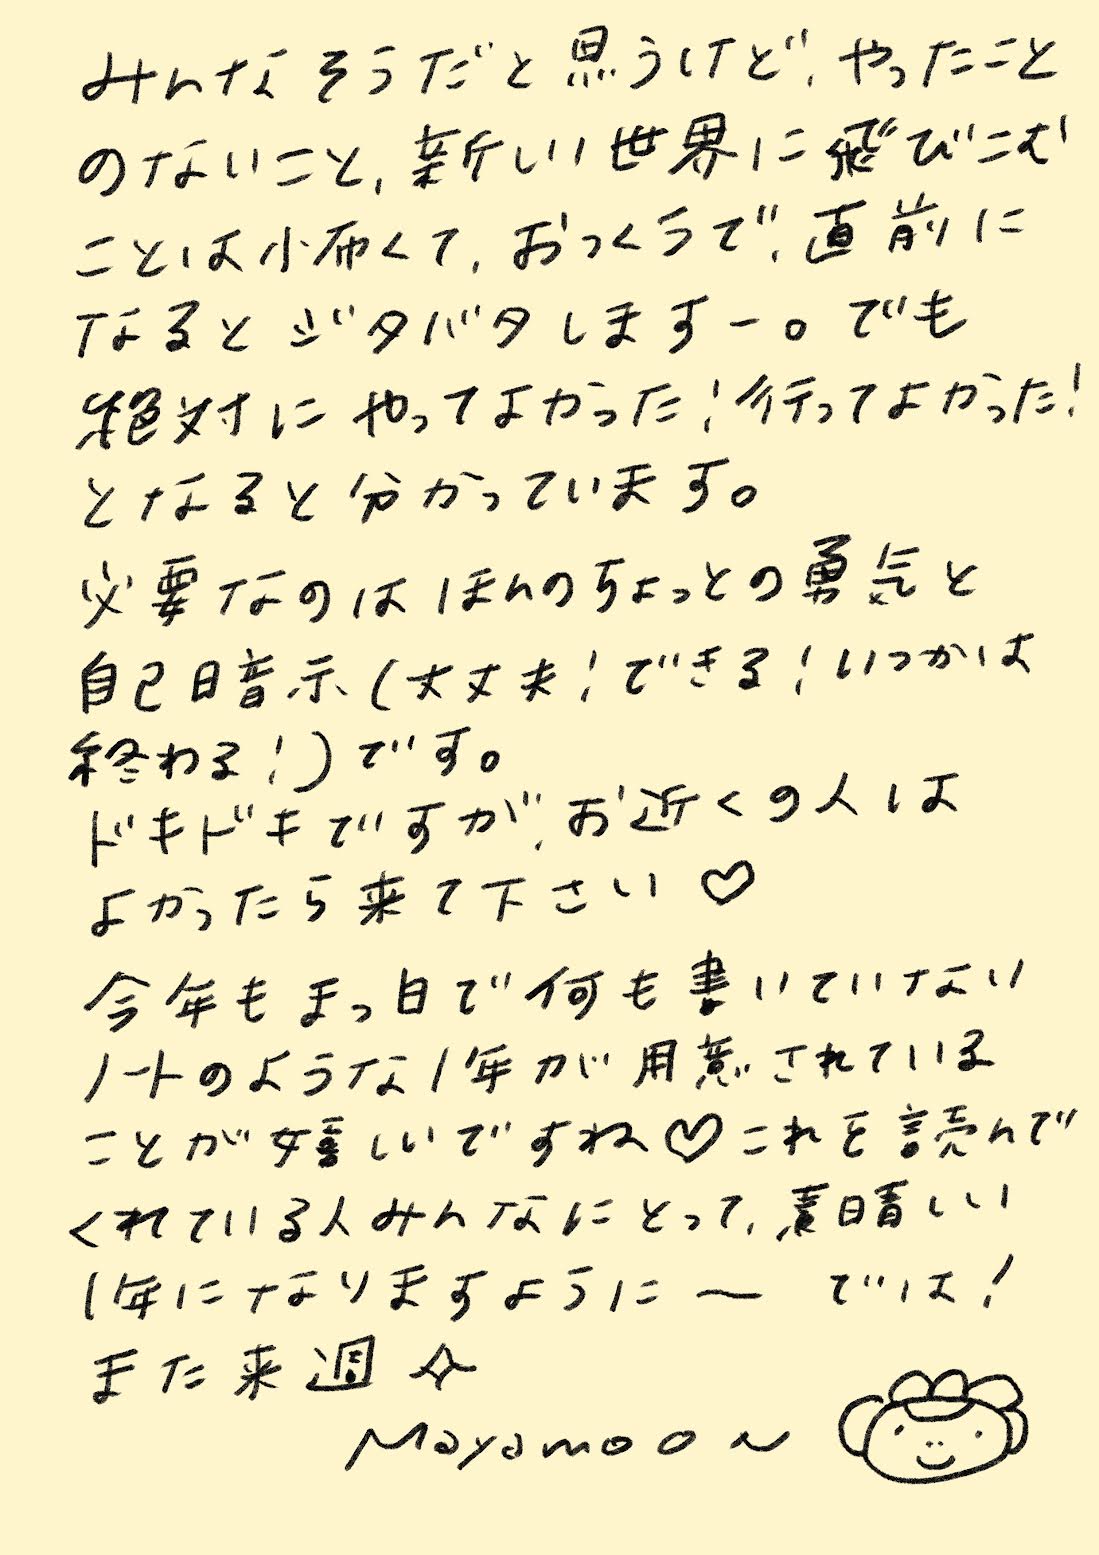 みんなそうだと思うけど、やったこと
のないこと、新しい世界に飛びこむ
ことは怖くて、おっくうで、直前に
なるとジタバタしますー。でも
絶対にやってよかった!行ってよかった!
となると分かっています。
必要なのはほんのちょっとの勇気と
自己暗示(大丈夫!できる!いつかは
終わる!)です。
ドキドキですが、お近くの人は
よかったら来て下さい♡
今年もまっ白で何も書いていない
ノートのような1年が用意されている
ことが嬉しいですね♡これを読んで
くれている人みんなにとって、素晴しい
1年になりますように〜 では!
また来週✧
Mayamoon